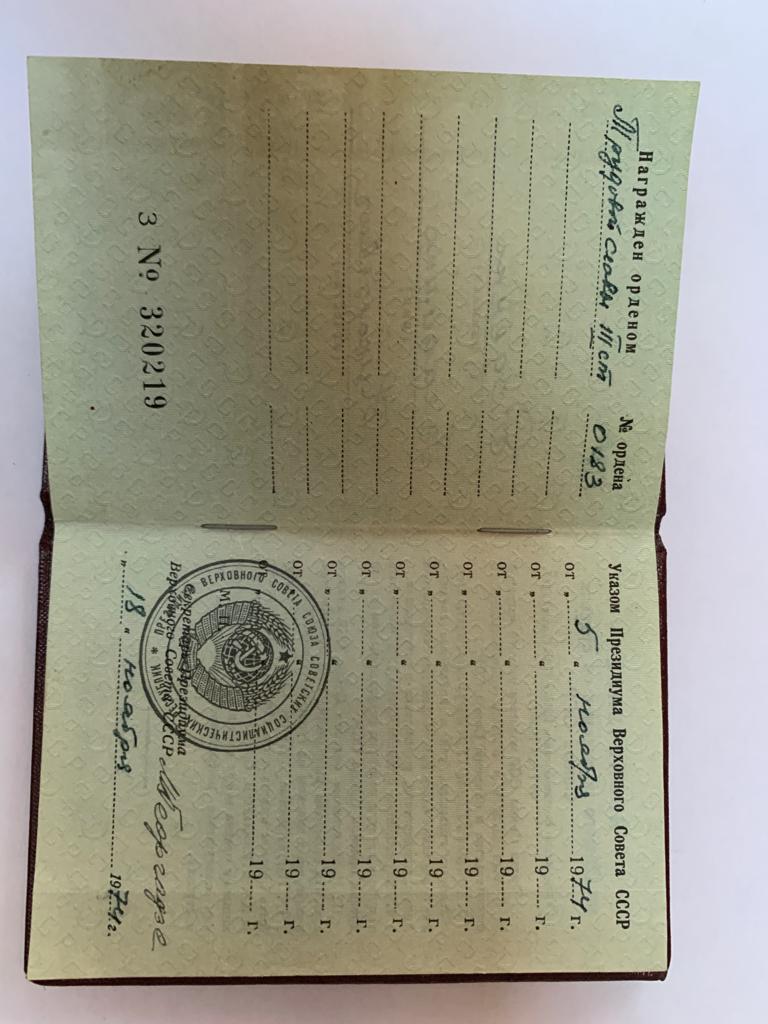 Награжден орденом
№ ордена
Трудовой славы III ст
0183
З № 320219
Указом Президиума Верховного Совета СССР
от „ 5 “ ноября 1974 г.
от „ “ 19 г.
от „ “ 19 г.
от „ “ 19 г.
от „ “ 19 г.
от „ “ 19 г.
от „ “ 19 г.
от „ “ 19 г.
от „ “ 19 г.
от „ “ 19 г.
М. П.
Секретарь Президиума
Верховного Совета СССР МГеоргадзе
„ 18 “ ноября 1974 г.
ВЕРХОВНОГО СОВЕТА СОЮЗА СОВЕТСКИХ СОЦИАЛИСТИЧЕСКИХ